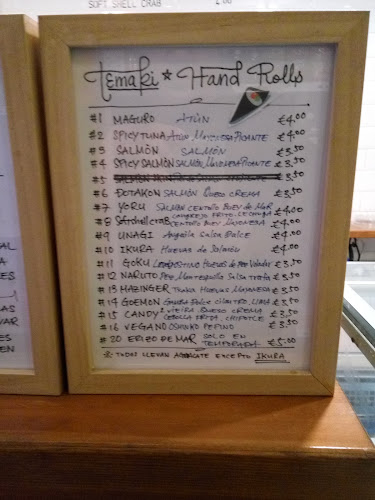 SOFT SHELL CRAB
Temaki * Hand Rolls
#1 MAGURO ATÚN €4.00
#2 SPICYTUNA ATÚN MAYONESA PICANTE €4.00
#3 SALMÓN SALMÓN €3.50
#4 SPICYSALMÓN SALMÓN, MAYONESA PICANTE €3.50
#5 €3.50
#6 DOTAKON SALMÓN QUESO CREMA €3.50
#7 YORU SALMÓN CENTOLLO BUEY DE MAR €4.00
#8 Softshellcrab CANGREJO FRITO, LECHUGA €4.00
CENTOLLO BUEY MAYONESA
#9 UNAGI Anguila SALSA DULCE €4.00
#10 IKURA HUEVAS de SALMÓN €4.00
#11 GOKU LANGOSTINO HUEVAS DE PEZ VOLADOR €3.50
#12 NARUTO PEZ MANTEQUILLA SALSA TRUFA €3.50
#13 MAZINGER TUNA HUEVAS MAYONESA €3.50
#14 GOEMON GAMBA DULCE CILANTRO, LIMA €3.50
#15 CANDY VIEIRA QUESO CREMA €3.50
CEBOLLA FRITA, CHIPOTLE
#16 VEGANO OSHINKO PEPINO €3.50
#20 ERIZO DE MAR SOLO EN
TEMPORADA €5.00
* TODOS LLEVAN AGUACATE EXCEPTO IKURA
AL
ES
AS
VAR
ES
EN